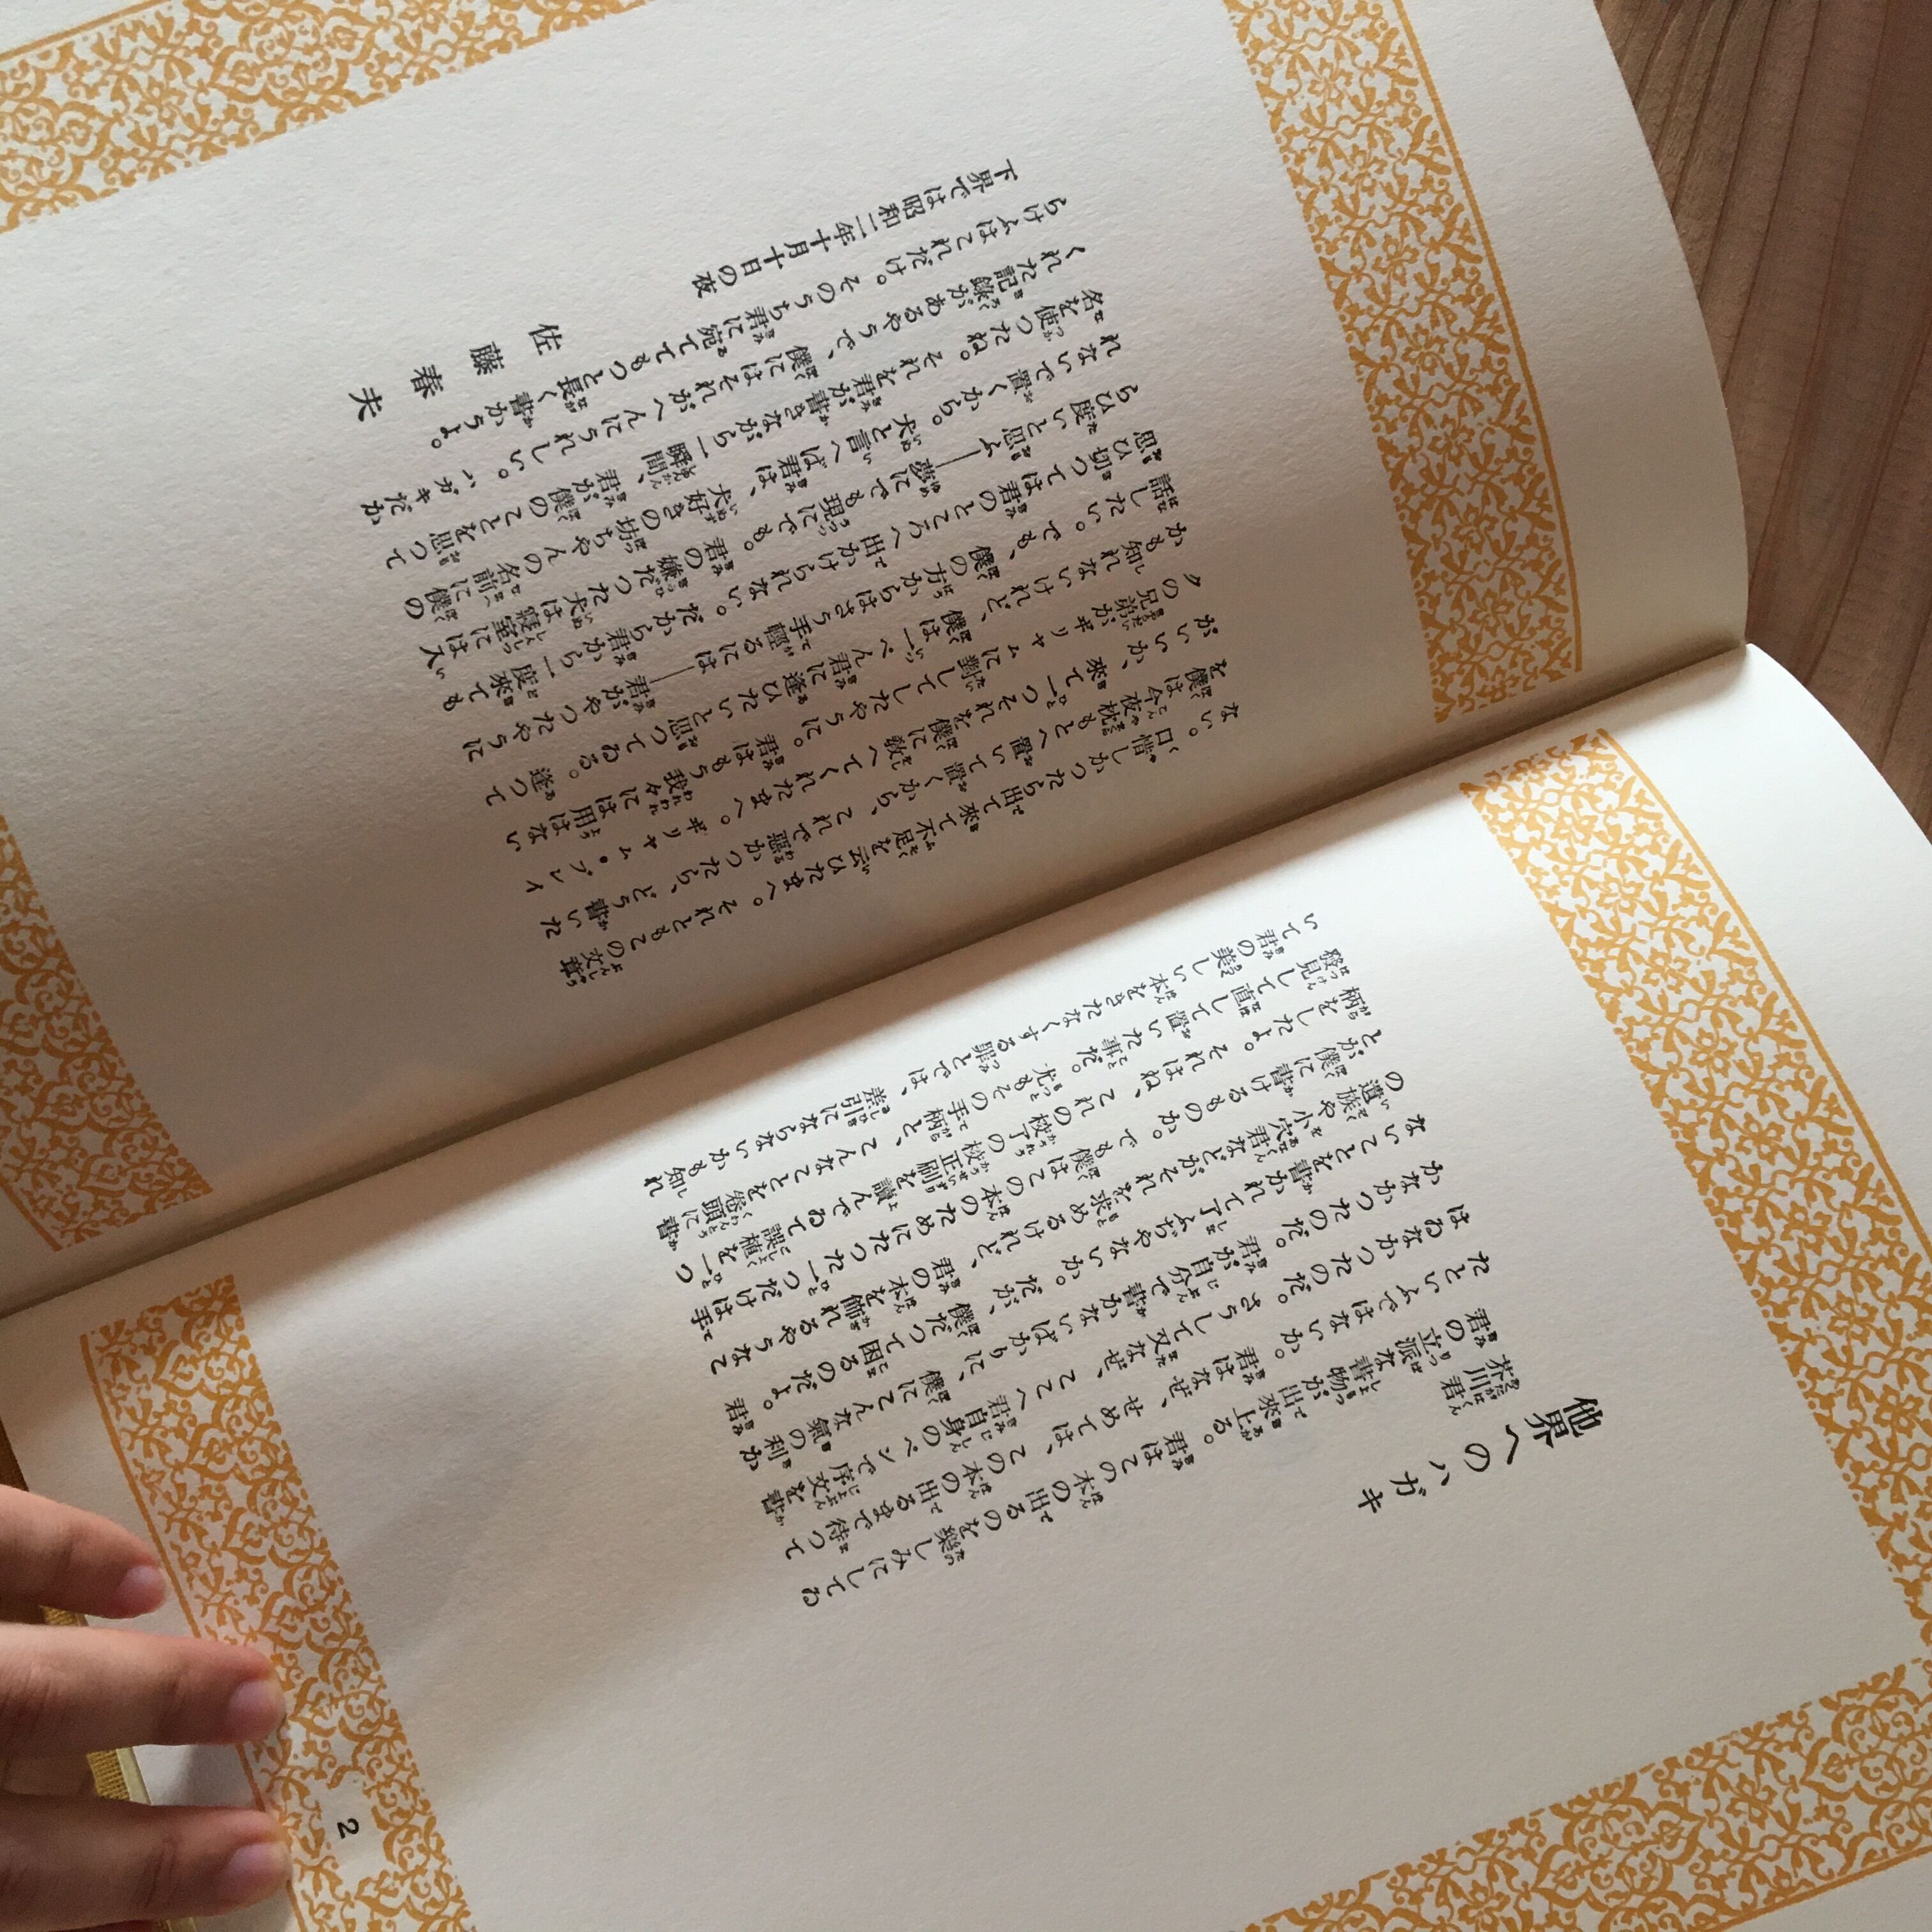 他界へのハガキ
芥川君
君の立派な書物が出來上る。君はこの本の出るのを樂しみにしてゐ
たといふではないか。君はなぜ、せめては、この本の出るまで待つて
はゐなかつたのだ。さうして又なぜ、ここへ君自身のペンで序文を書
かなかつたのだ。君が自分で書かないばかりに、僕にこんな氣の利か
ないことを書かれて了ふぢやないか。だが、僕だつて困るのだよ。君
の遺族や小穴君などがそれを求めるけれど、君の本を飾れるやうなこ
とが僕に書けるものか。でも僕はこの本のためにたつた一つだけは手
柄をしたよ。それはね、これの校了の校正刷を讀んでゐて誤植を一つ
發見して直して置いた事だ。尤もその手柄と、こんなことを卷頭に書
いて君の美しい本をきたなくする罪とでは、差引にならないかも知れ
2
ない。口惜しかつたら出て來て不足を云ひたまへ。それともこの文章
を僕は今夜枕もとへ置いて置くから、これで惡かつたら、どう書いた
がいいか、來て一つそれを僕に敎へてくれたまへ。ヰリヤム・ブレイ
クの兄弟がヰリヤムに對してしたやうに。君はもう我々には用はない
かも知れないけれど、僕は一ぺん君に逢ひたいと思つてゐる。逢つて
話したい。でも、僕の方からはさう手輕には――君がやつたやうに
思ひ切つては君のところへ出かけられない。だから君から一度來ても
らひ度いと思ふ――夢にでも現にでも。君の嫌だつた犬は寢室には入
れないで置くから。犬と言へば君は、犬好きの坊ちやんの名前に僕の
名を使つたね。それを君が書きながら一瞬間、君が僕のことを思つて
くれた記錄があるやうで、僕にはそれがへんにうれしい。ハガキだか
らけふはこれだけ。そのうち君に宛ててもつと長く書かうよ。
下界では昭和二年十月十日の夜
佐藤春夫